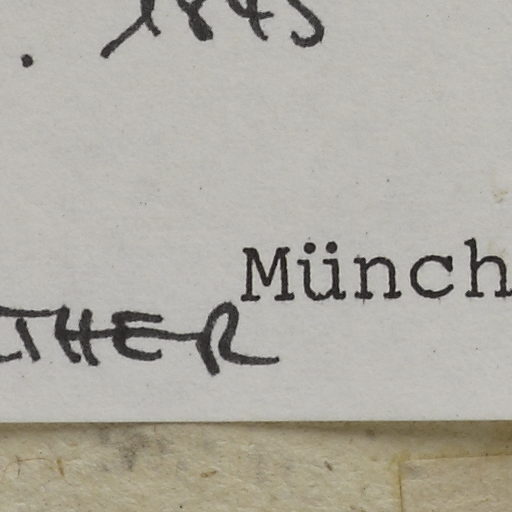 . 1845
Münch
THER